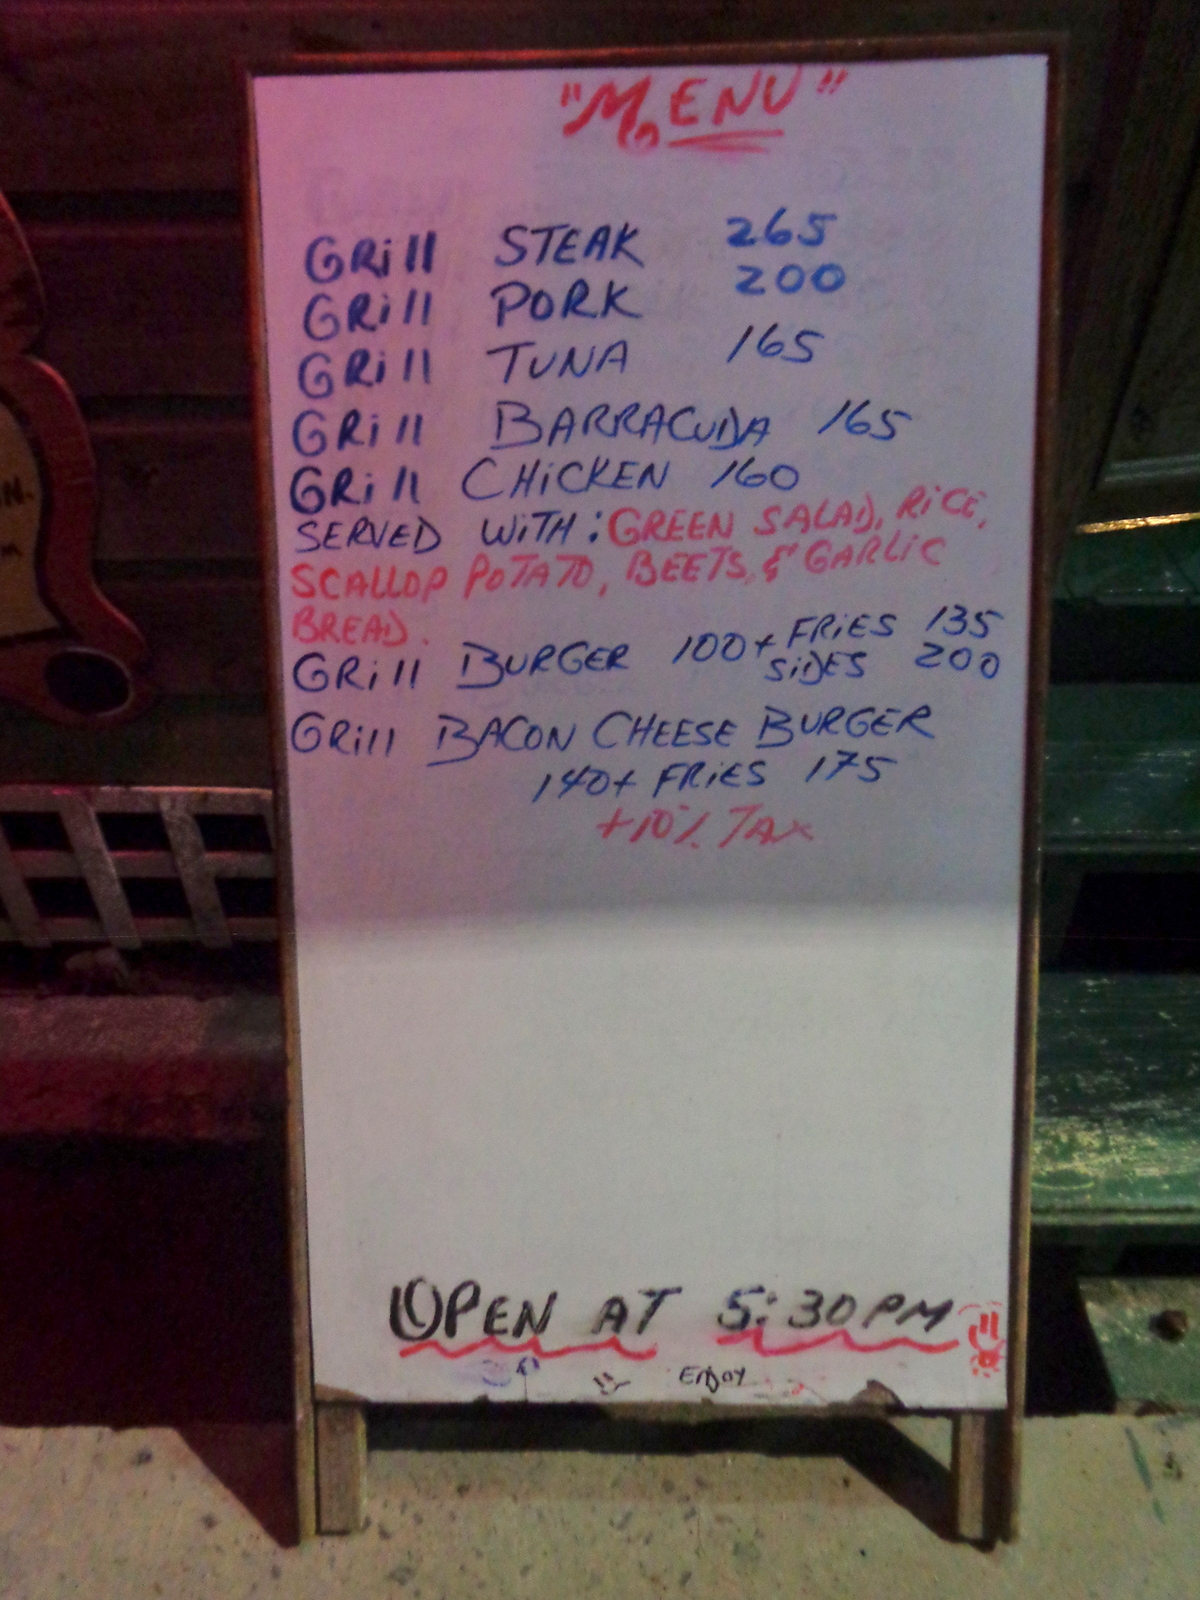 "MENU"
GRill STEAK 265
GRill PORK 200
GRill TUNA 165
GRill BARRACUDA 165
GRill CHiCKEN 160
SERVED WiTH: GREEN SALAD, RiCE,
SCALLOP POTATO, BEETS, & GARLiC
BREAD.
GRill BURGER 100+ FRiES 135
SiDES 200
GRill BACON CHEESE BURGER
140+ FRiES 175
+10% TAX
OPEN AT 5:30PM
ENJOY